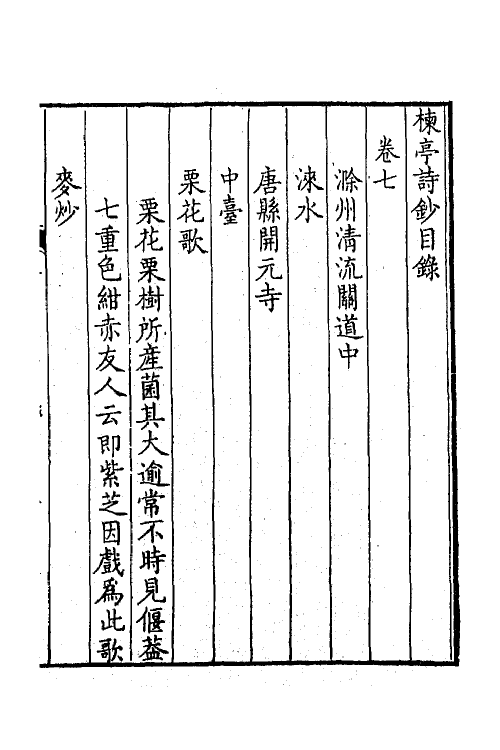 楝亭詩鈔目錄
卷七
滁州清流關道中
淶水
唐縣開元寺
中臺
栗花歌
栗花栗樹所產菌其大逾常不時見偃葢
七重色紺赤友人云即紫芝因戲爲此歌
麥炒